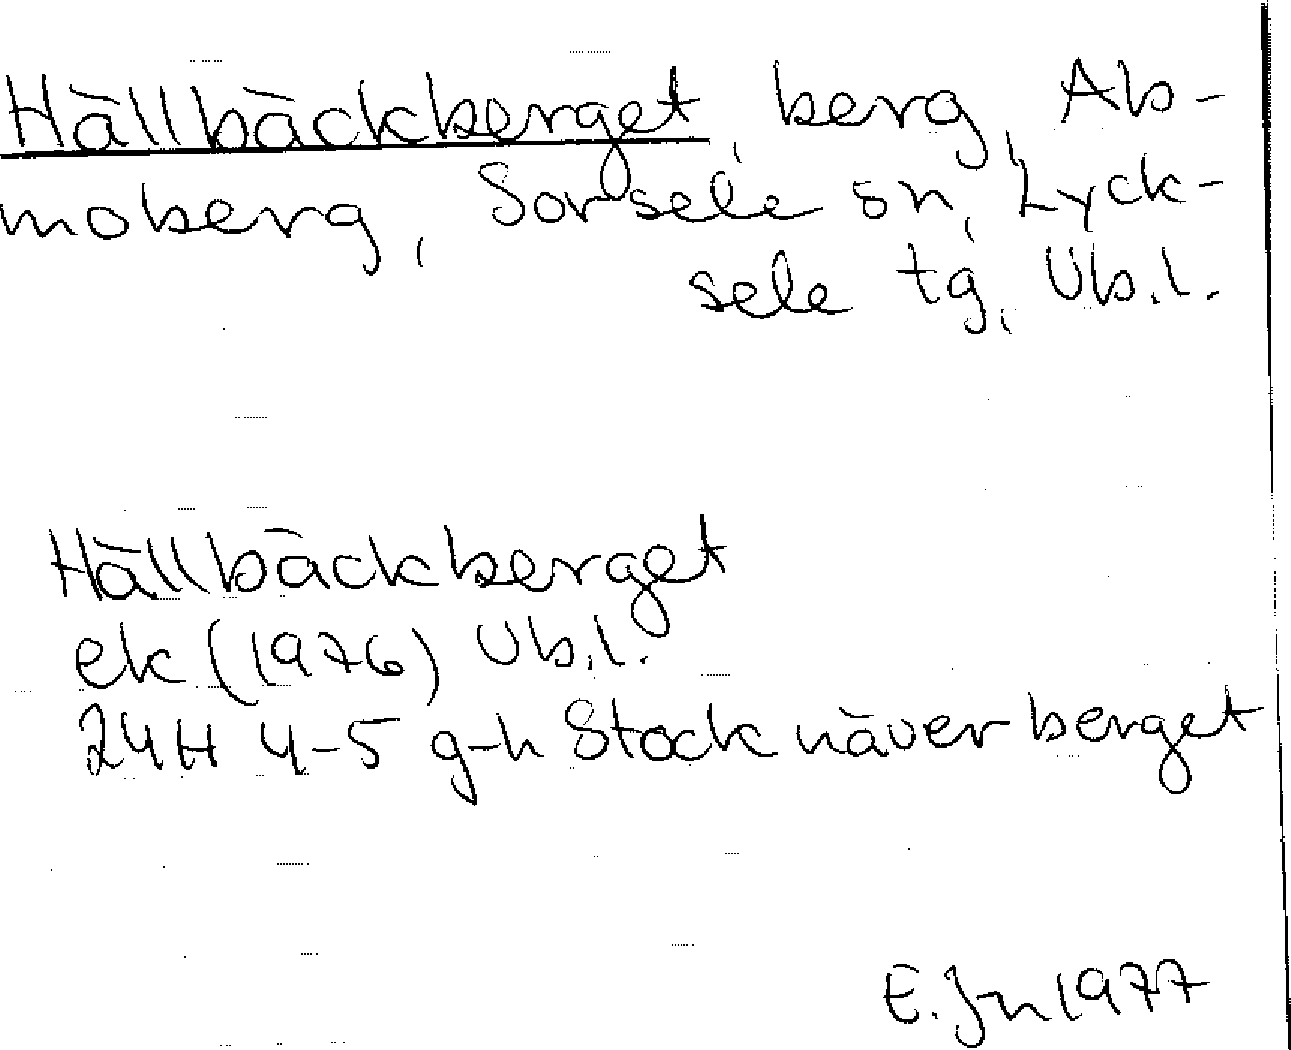 Hällbäckberget, berg, Ab-
moberg, Sorsele sn, Lyck-
sele tg, Vb.l.
Hällbäckberget
ek (1976) Vb.l.
24H 4-5 g-h Stocknäverberget
E. Jn 1977